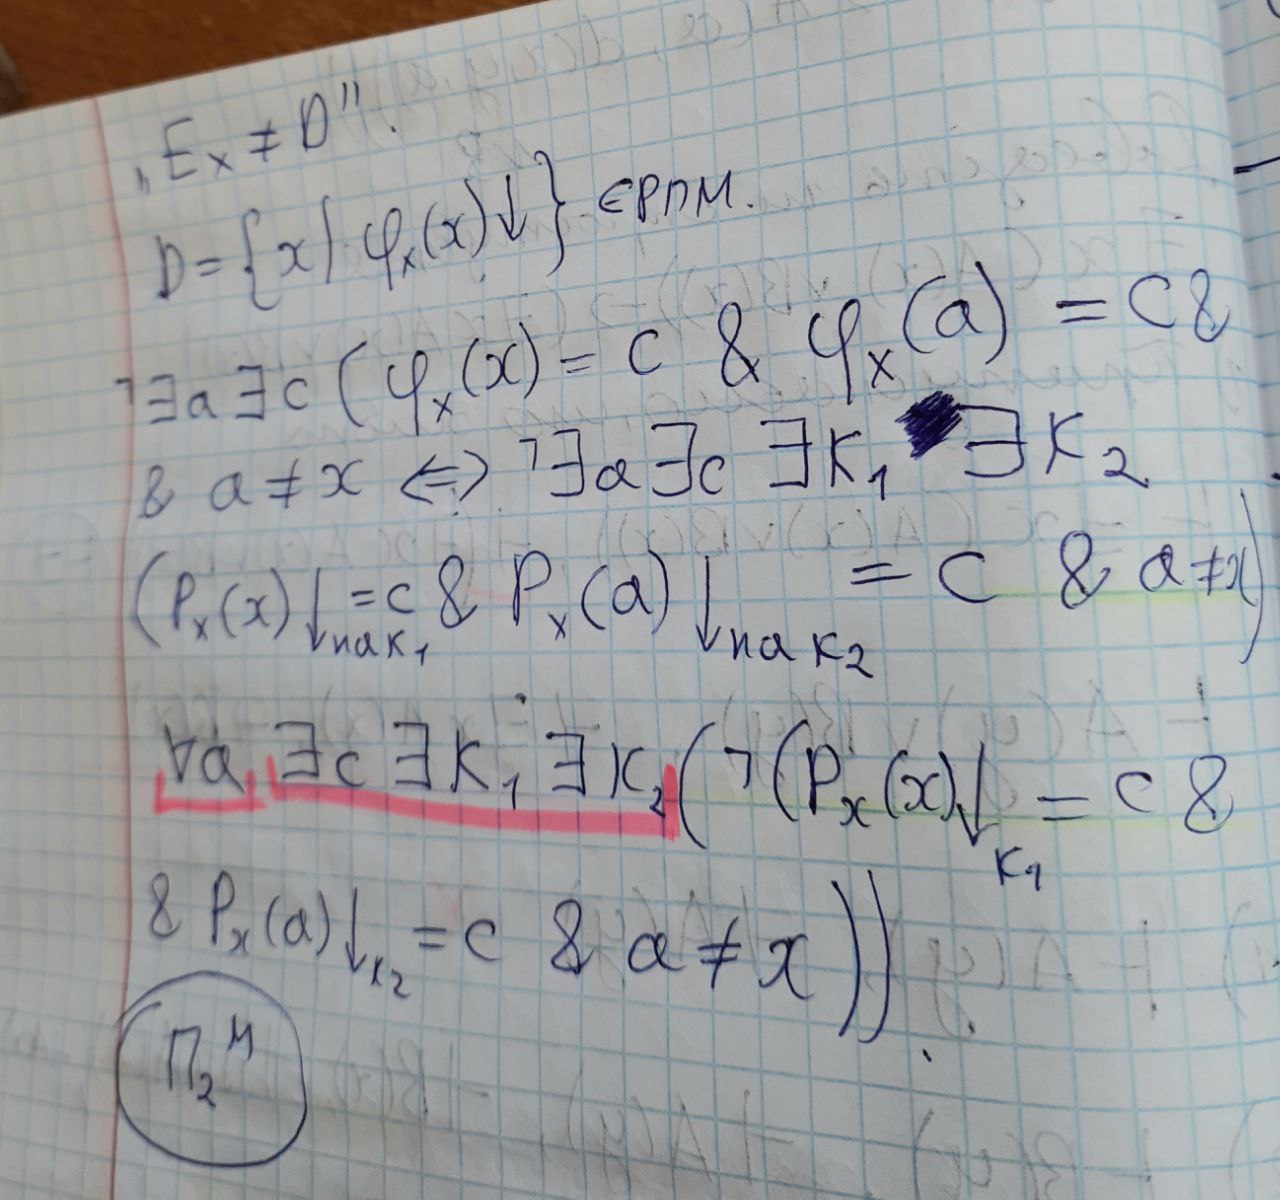 „Eₓ ≠ D".
D = {x | φₓ(x)↓} є РПМ.
¬∃a ∃c (φₓ(x) = c & φₓ(a) = c &
& a ≠ x ⇔ ¬∃a ∃c ∃k₁ ∃k₂
(Pₓ(x)↓на k₁ = c & Pₓ(a)↓на k₂ = c & a ≠ x)
∀a ∃c ∃k₁ ∃k₂ (¬(Pₓ(x)↓k₁ = c &
& Pₓ(a)↓k₂ = c & a ≠ x)).
П₂ᵸ